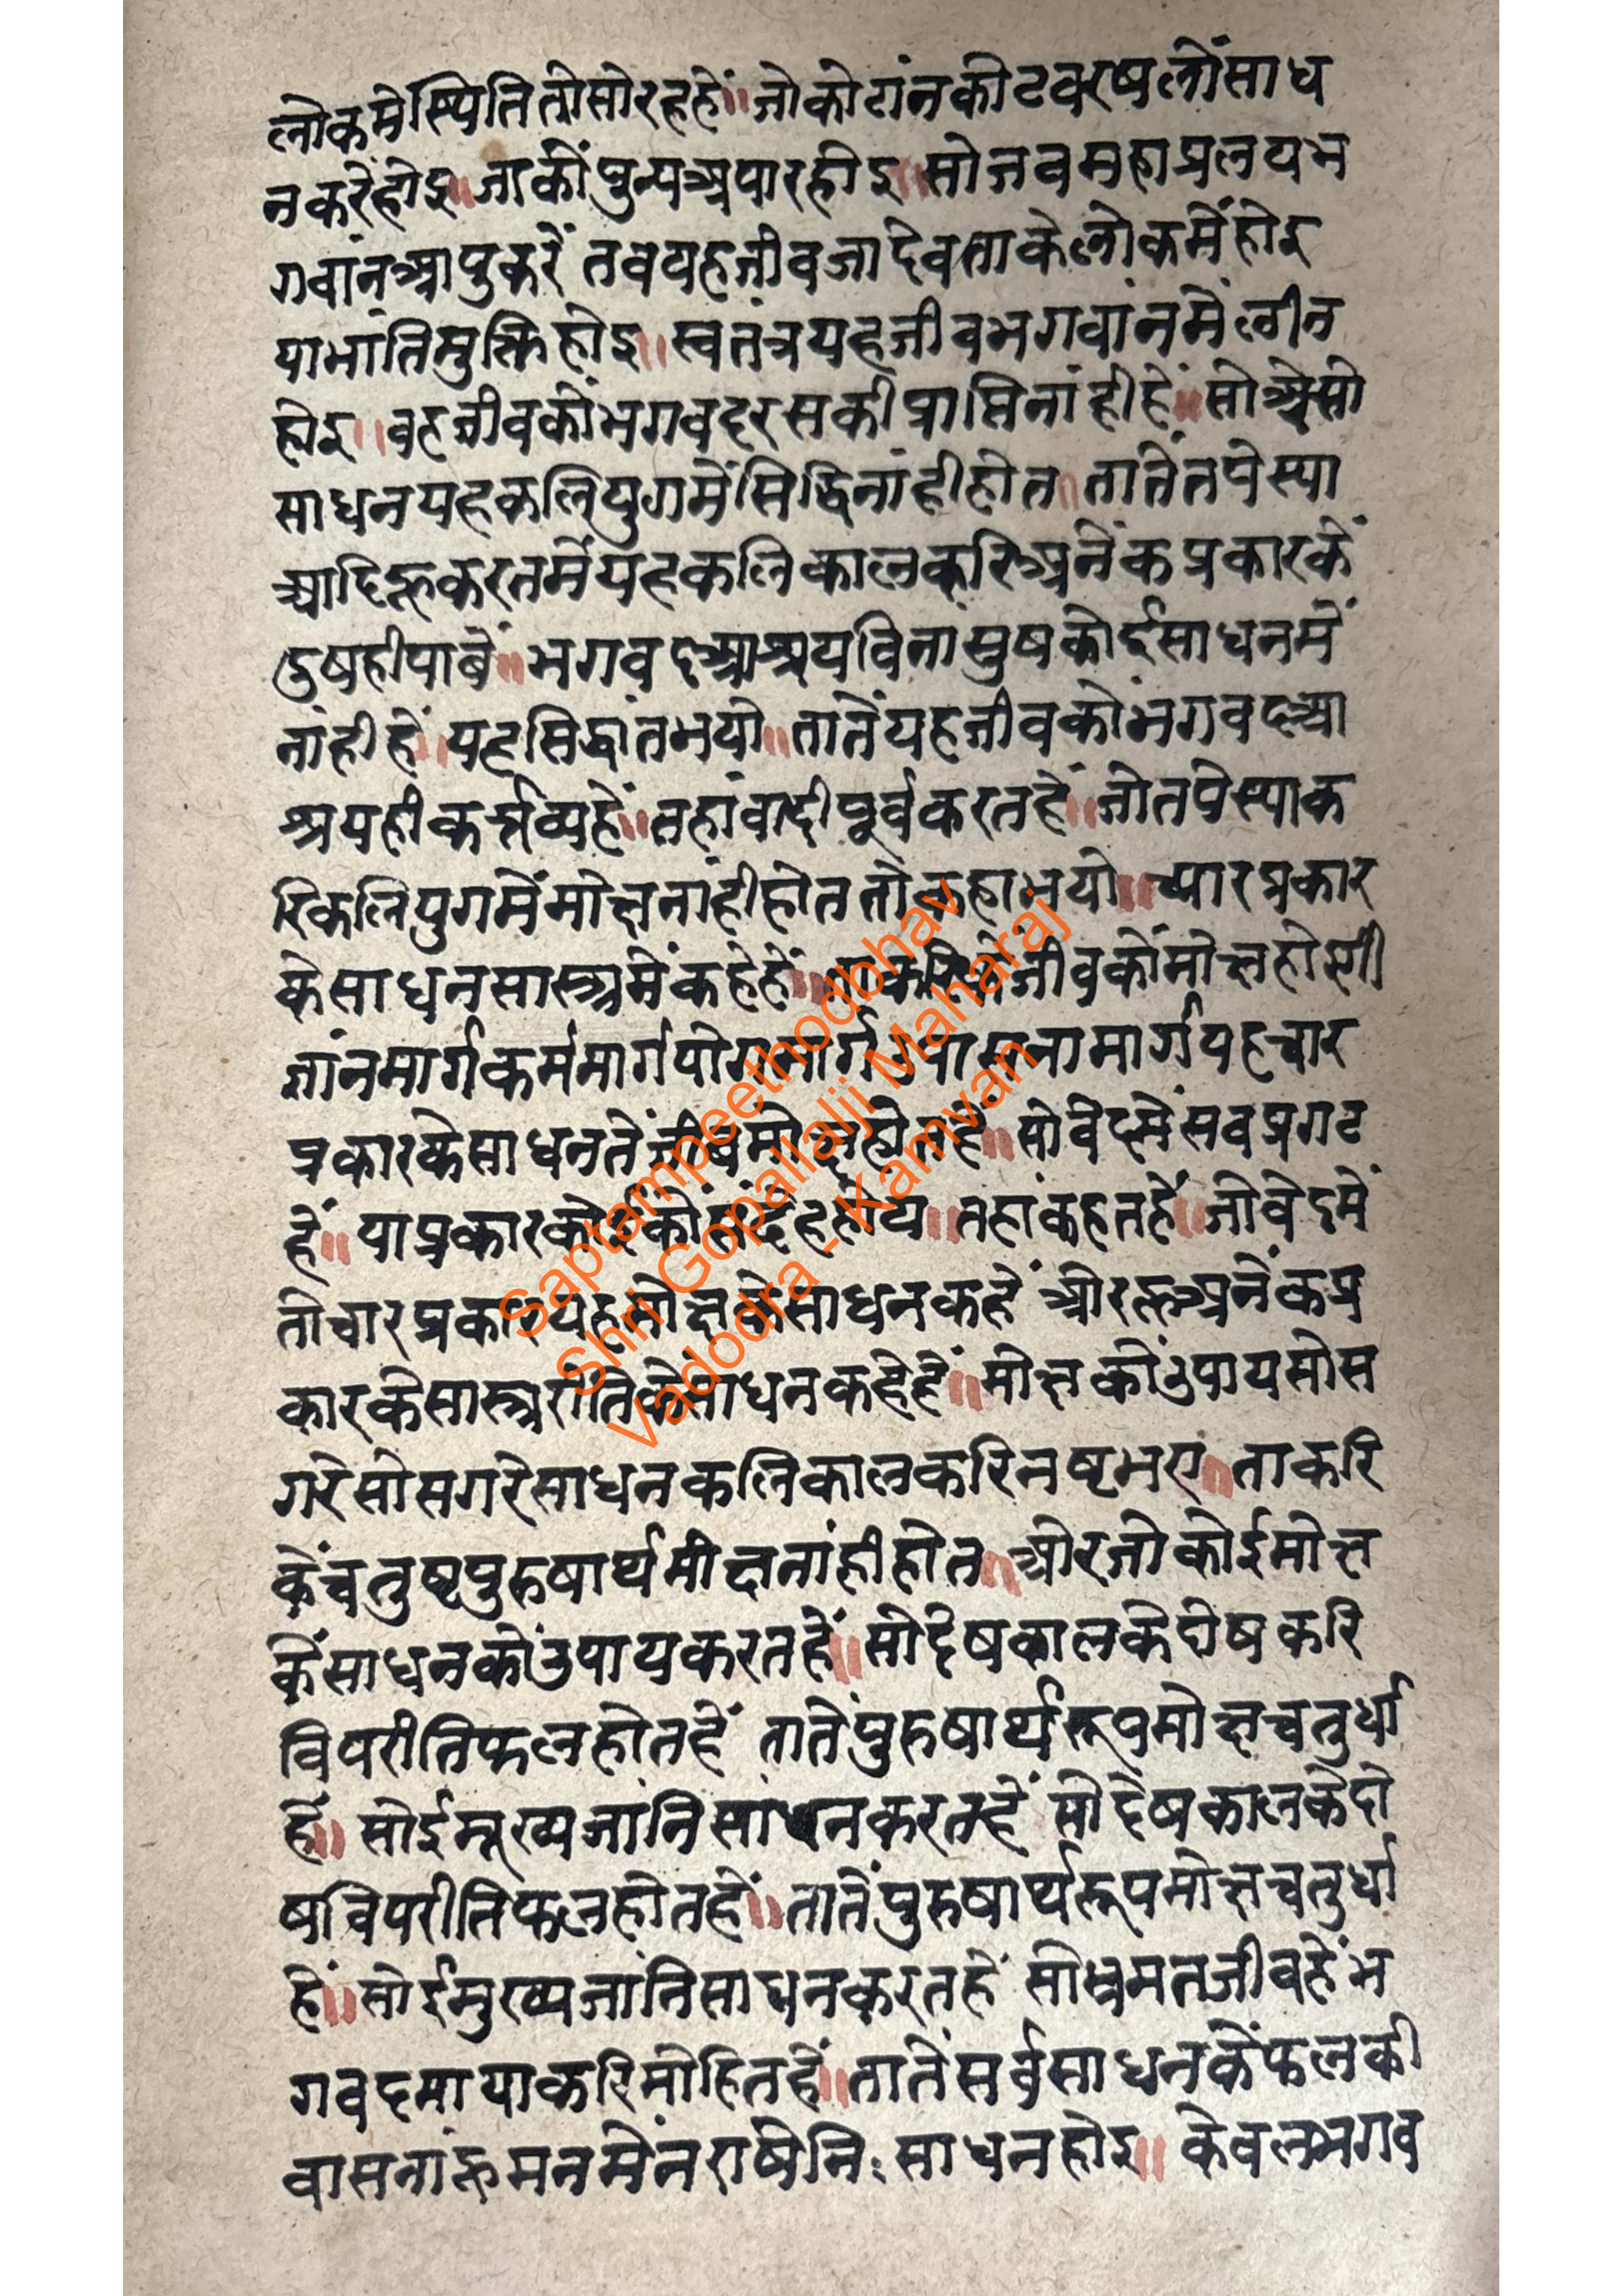 लोकमेंस्थितितोसोरहहें॥जोकोटांनकोटवरषलोंसाध
नकरेंहोइ॥जाकींपुन्यअपारहोइ॥सोजवमहाप्रलयभ
गवांनआपुकरें तवयहजीवजादेवताकेलोकमेंहोइ
याभांतिमुक्तिहोइ॥स्वतंत्रयहजीवभगवांनमेंलीन
होइ॥वहजीवकोंभगवदरसकीप्राप्तिनांहीहें॥सोअैसो
साधनयहकलियुगमेंसिद्धिनांहीहोत॥तातेंतपेस्या
आदिहूकरतमेंयहकलिकालकरिअनेंकप्रकारकें
दुषहीपाबें॥भगवदआश्रयविनासुषकोईसाधनमें
नांहीहें॥यहसिद्धांतभयो॥तातेंयहजीवकोंभगवदआ
श्रयहीकर्त्तव्यहें॥तहांवादीपूर्वकरतहें॥जोतपेस्याक
रिकलियुगमेंमोक्षनांहीहोततोकहाभयो॥च्यारप्रकार
केसाधनसास्त्रमेंकहेहें॥ताकरिकेंजीवकोंमोक्षहोयगी
ज्ञांनमार्गकर्ममार्गयोगमार्गउपासनामार्गयहचार
प्रकारकेसाधनतेंजीवमोक्षहोतहें॥सोवेदमेंसवप्रगट
हें॥याप्रकारकोईकोंसंदेहहोय॥तहांकहतहें॥जोवेदमें
तोचारप्रकारयहमोक्षकेसाधनकहें औरहूअनेंकप्र
कारकेसास्त्ररीतिकेसाधनकहेहें॥मोक्षकोंउपायसोस
गरेसोसगरेसाधनकलिकालकरिनष्टभए॥ताकरि
केंचतुष्टपुरुषार्थमोक्षनांहीहोत॥औरजोकोईमोक्ष
केंसाधनकोंउपायकरतहें॥सोदेषकालकेदोषकरि
विपरीतिफलहोतहें तातेंपुरुषार्थरूपमोक्षचतुर्धा
हें॥सोईमूख्यजांनिसाधनकरतहें सोदेषकालकेदो
षविपरीतिफलहोतहें॥तातेंपुरुषार्थरूपमोक्षचतुर्धा
हें॥सोईमुख्यजांनिसाधनकरतहें सोभ्रमतजीवहेंभ
गवदमायाकरिमोहितहें॥तातेंसर्वसाधनकेंफलकी
वासनाहूमनमेंनराषेनिःसाधनहोइ॥केवलभगव
Saptampeethodbhav
Shri Gopallalji Maharaj
Vadodra - Kamvan